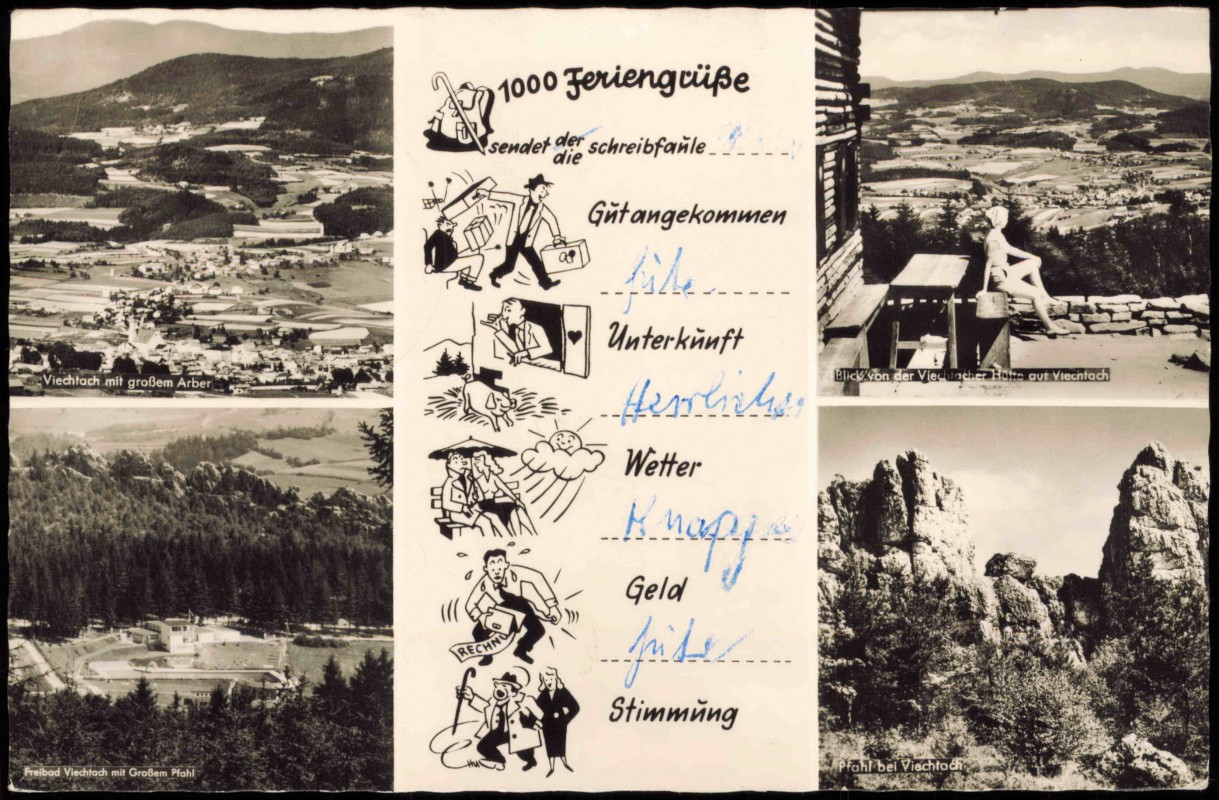 Viechtach mit großem Arber
Freibad Viechtach mit Großem Pfahl
1000 Feriengrüße
sendet der
die schreibfaule
Gut angekommen
gute
Unterkunft
Herrliches
Wetter
Knappes
Geld
RECHN
gute
Stimmung
Blick von der Viechtacher Hütte auf Viechtach
Pfahl bei Viechtach